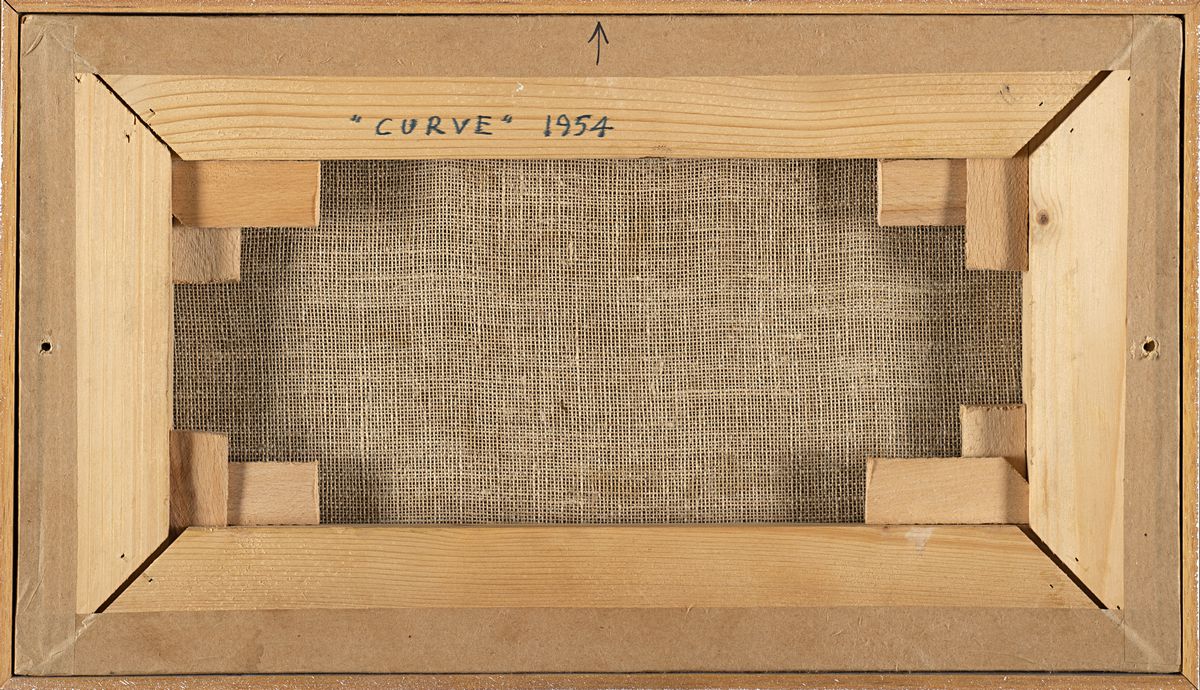 "CURVE" 1954